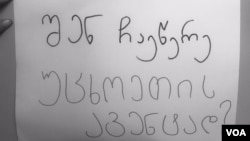 შენ ჩაეწერე
უცხოეთის
აგენტად?
VOA